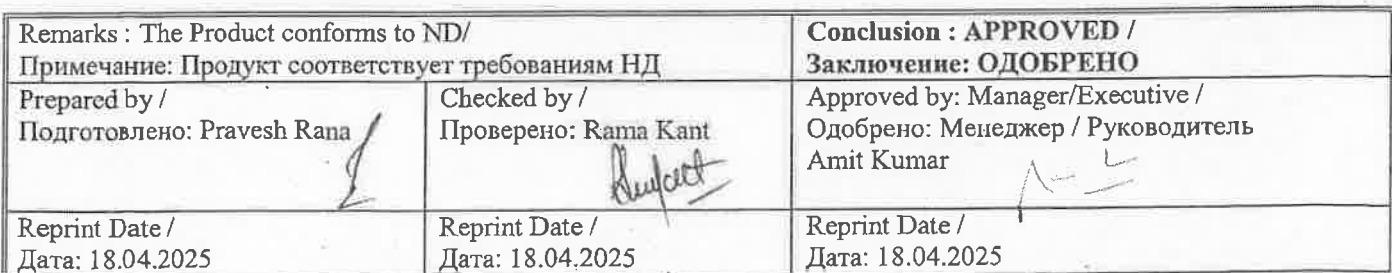 Remarks : The Product conforms to ND/
Примечание: Продукт соответствует требованиям НД
Conclusion : APPROVED /
Заключение: ОДОБРЕНО
Prepared by /
Подготовлено: Pravesh Rana
Checked by /
Проверено: Rama Kant
Approved by: Manager/Executive /
Одобрено: Менеджер / Руководитель
Amit Kumar
Reprint Date /
Дата: 18.04.2025
Reprint Date /
Дата: 18.04.2025
Reprint Date /
Дата: 18.04.2025